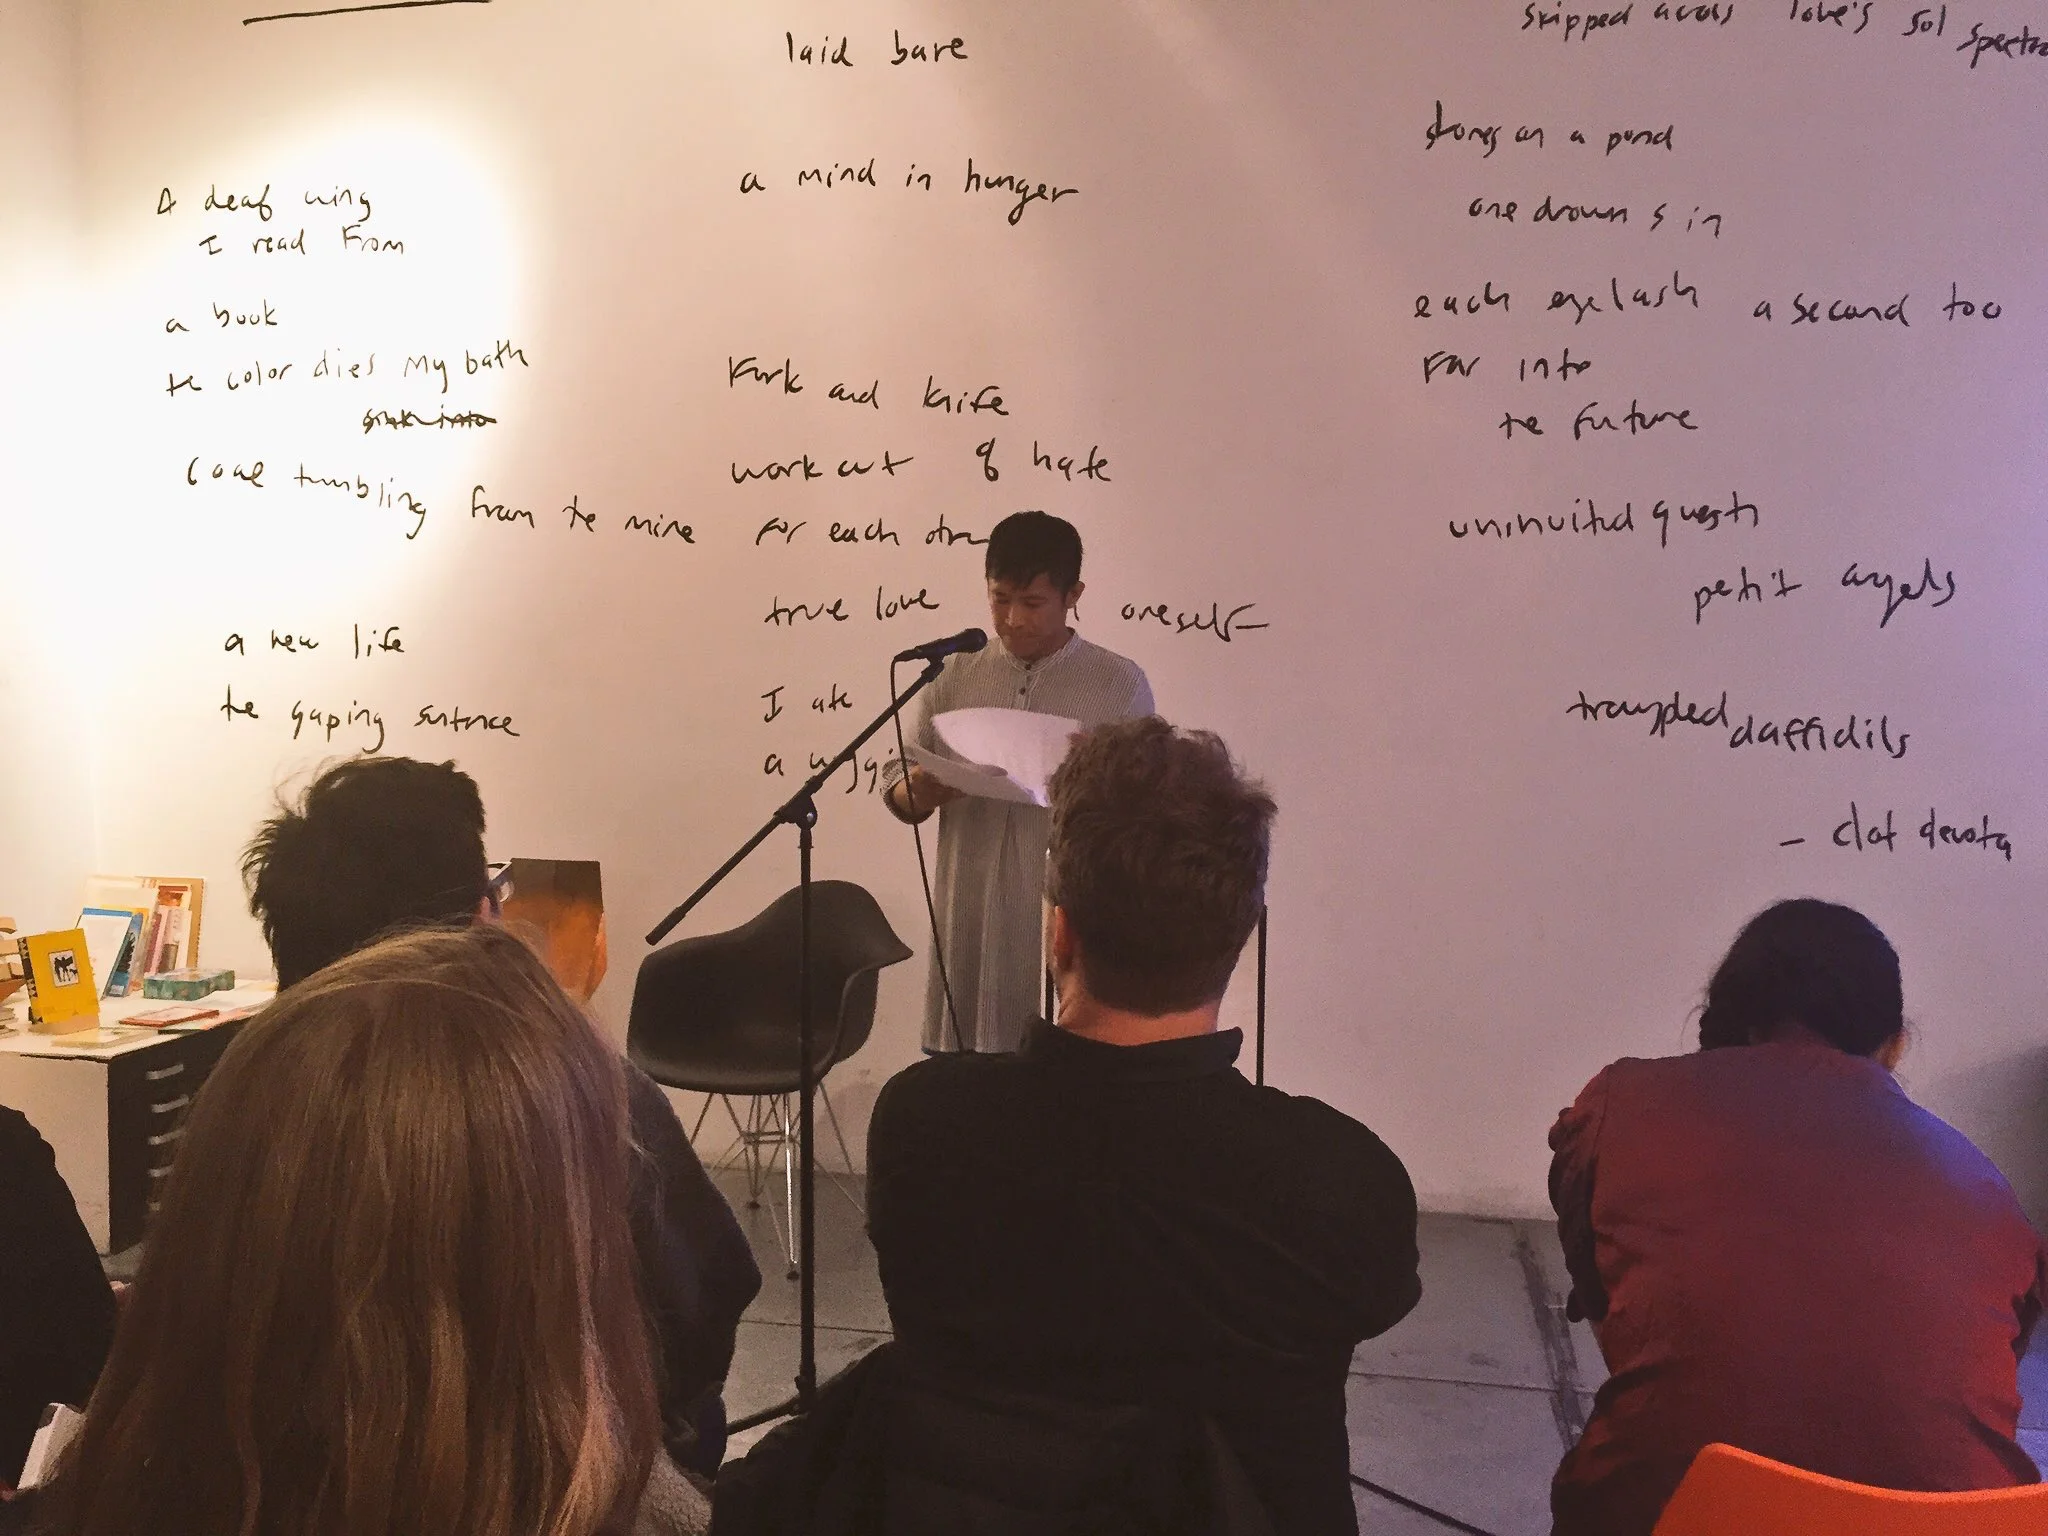 A deaf wing
I read From
a book
te color dies my bath
sink into
Coal tumbling from te mine
a new life
te gaping sentence
laid bare
a mind in hunger
Fork and knife
work out of hate
For each
true love
oneself
I ate
a
skipped across love's sol
stones on a pond
one drowns in
each eyelash a second too
Far into
te Future
uninvited guests
petit angels
trampled daffidils